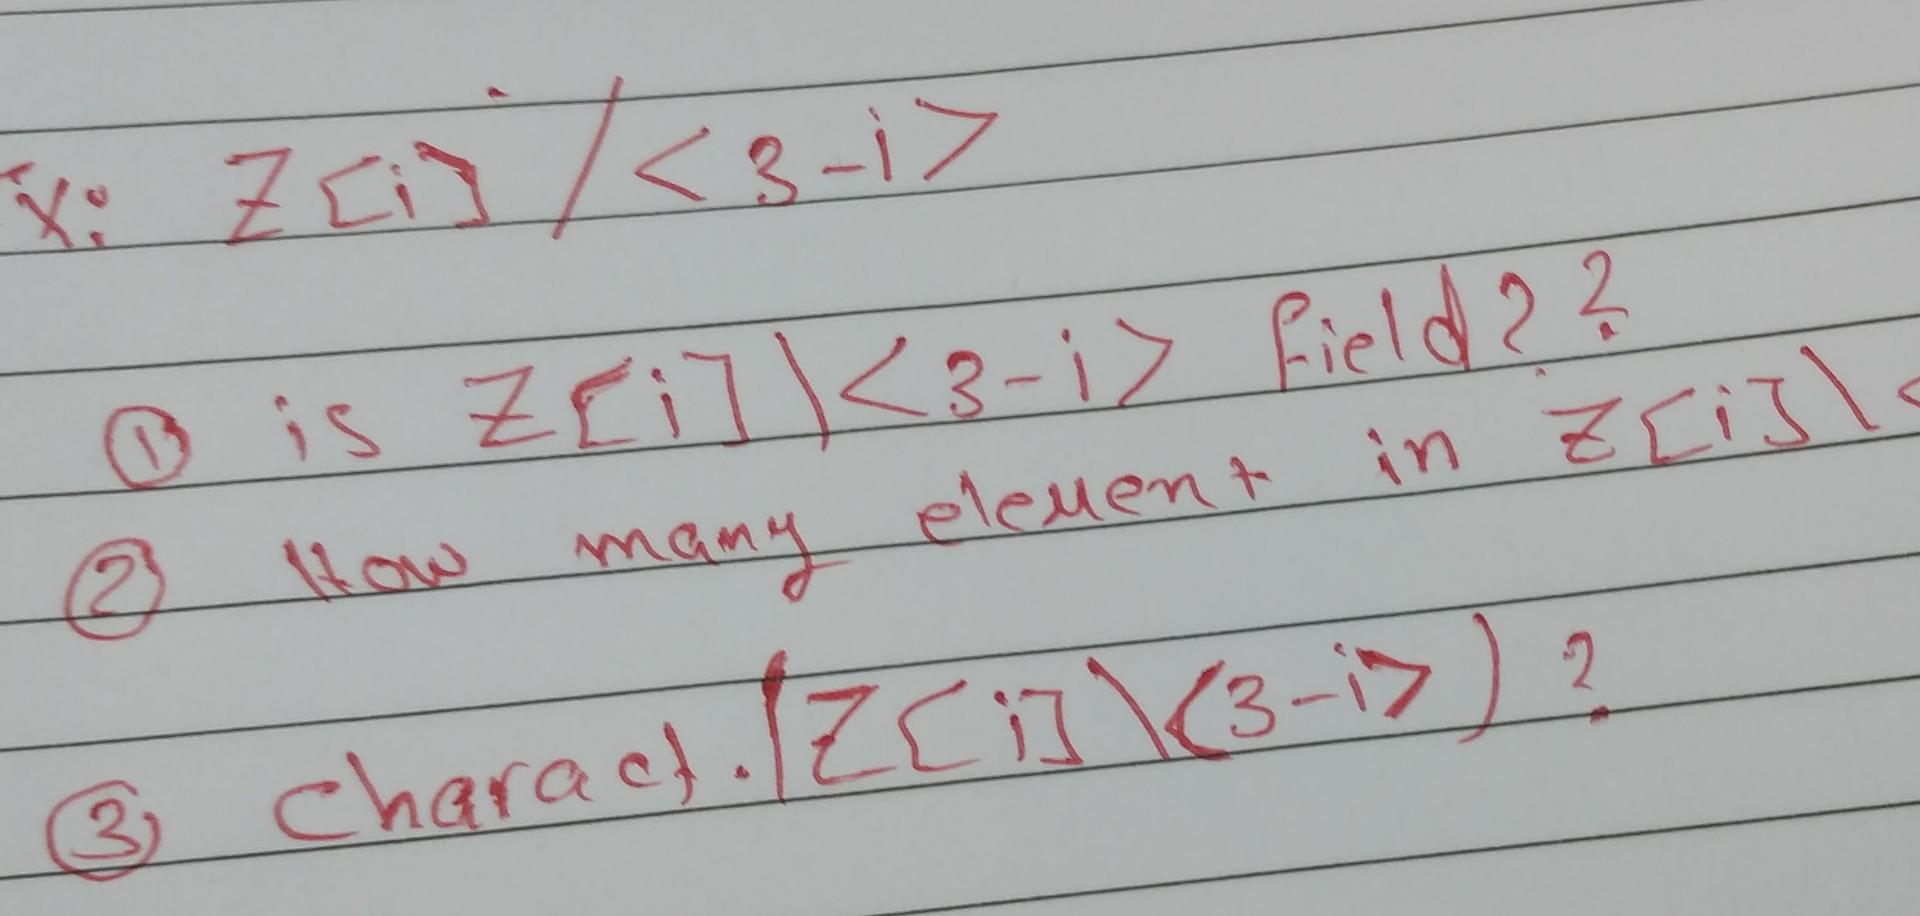 x: Z[i] / <3-i>
① is Z[i] \ <3-i> field??
② How many element in Z[i] \ <
③ charact. (Z[i] \ <3-i>) ?